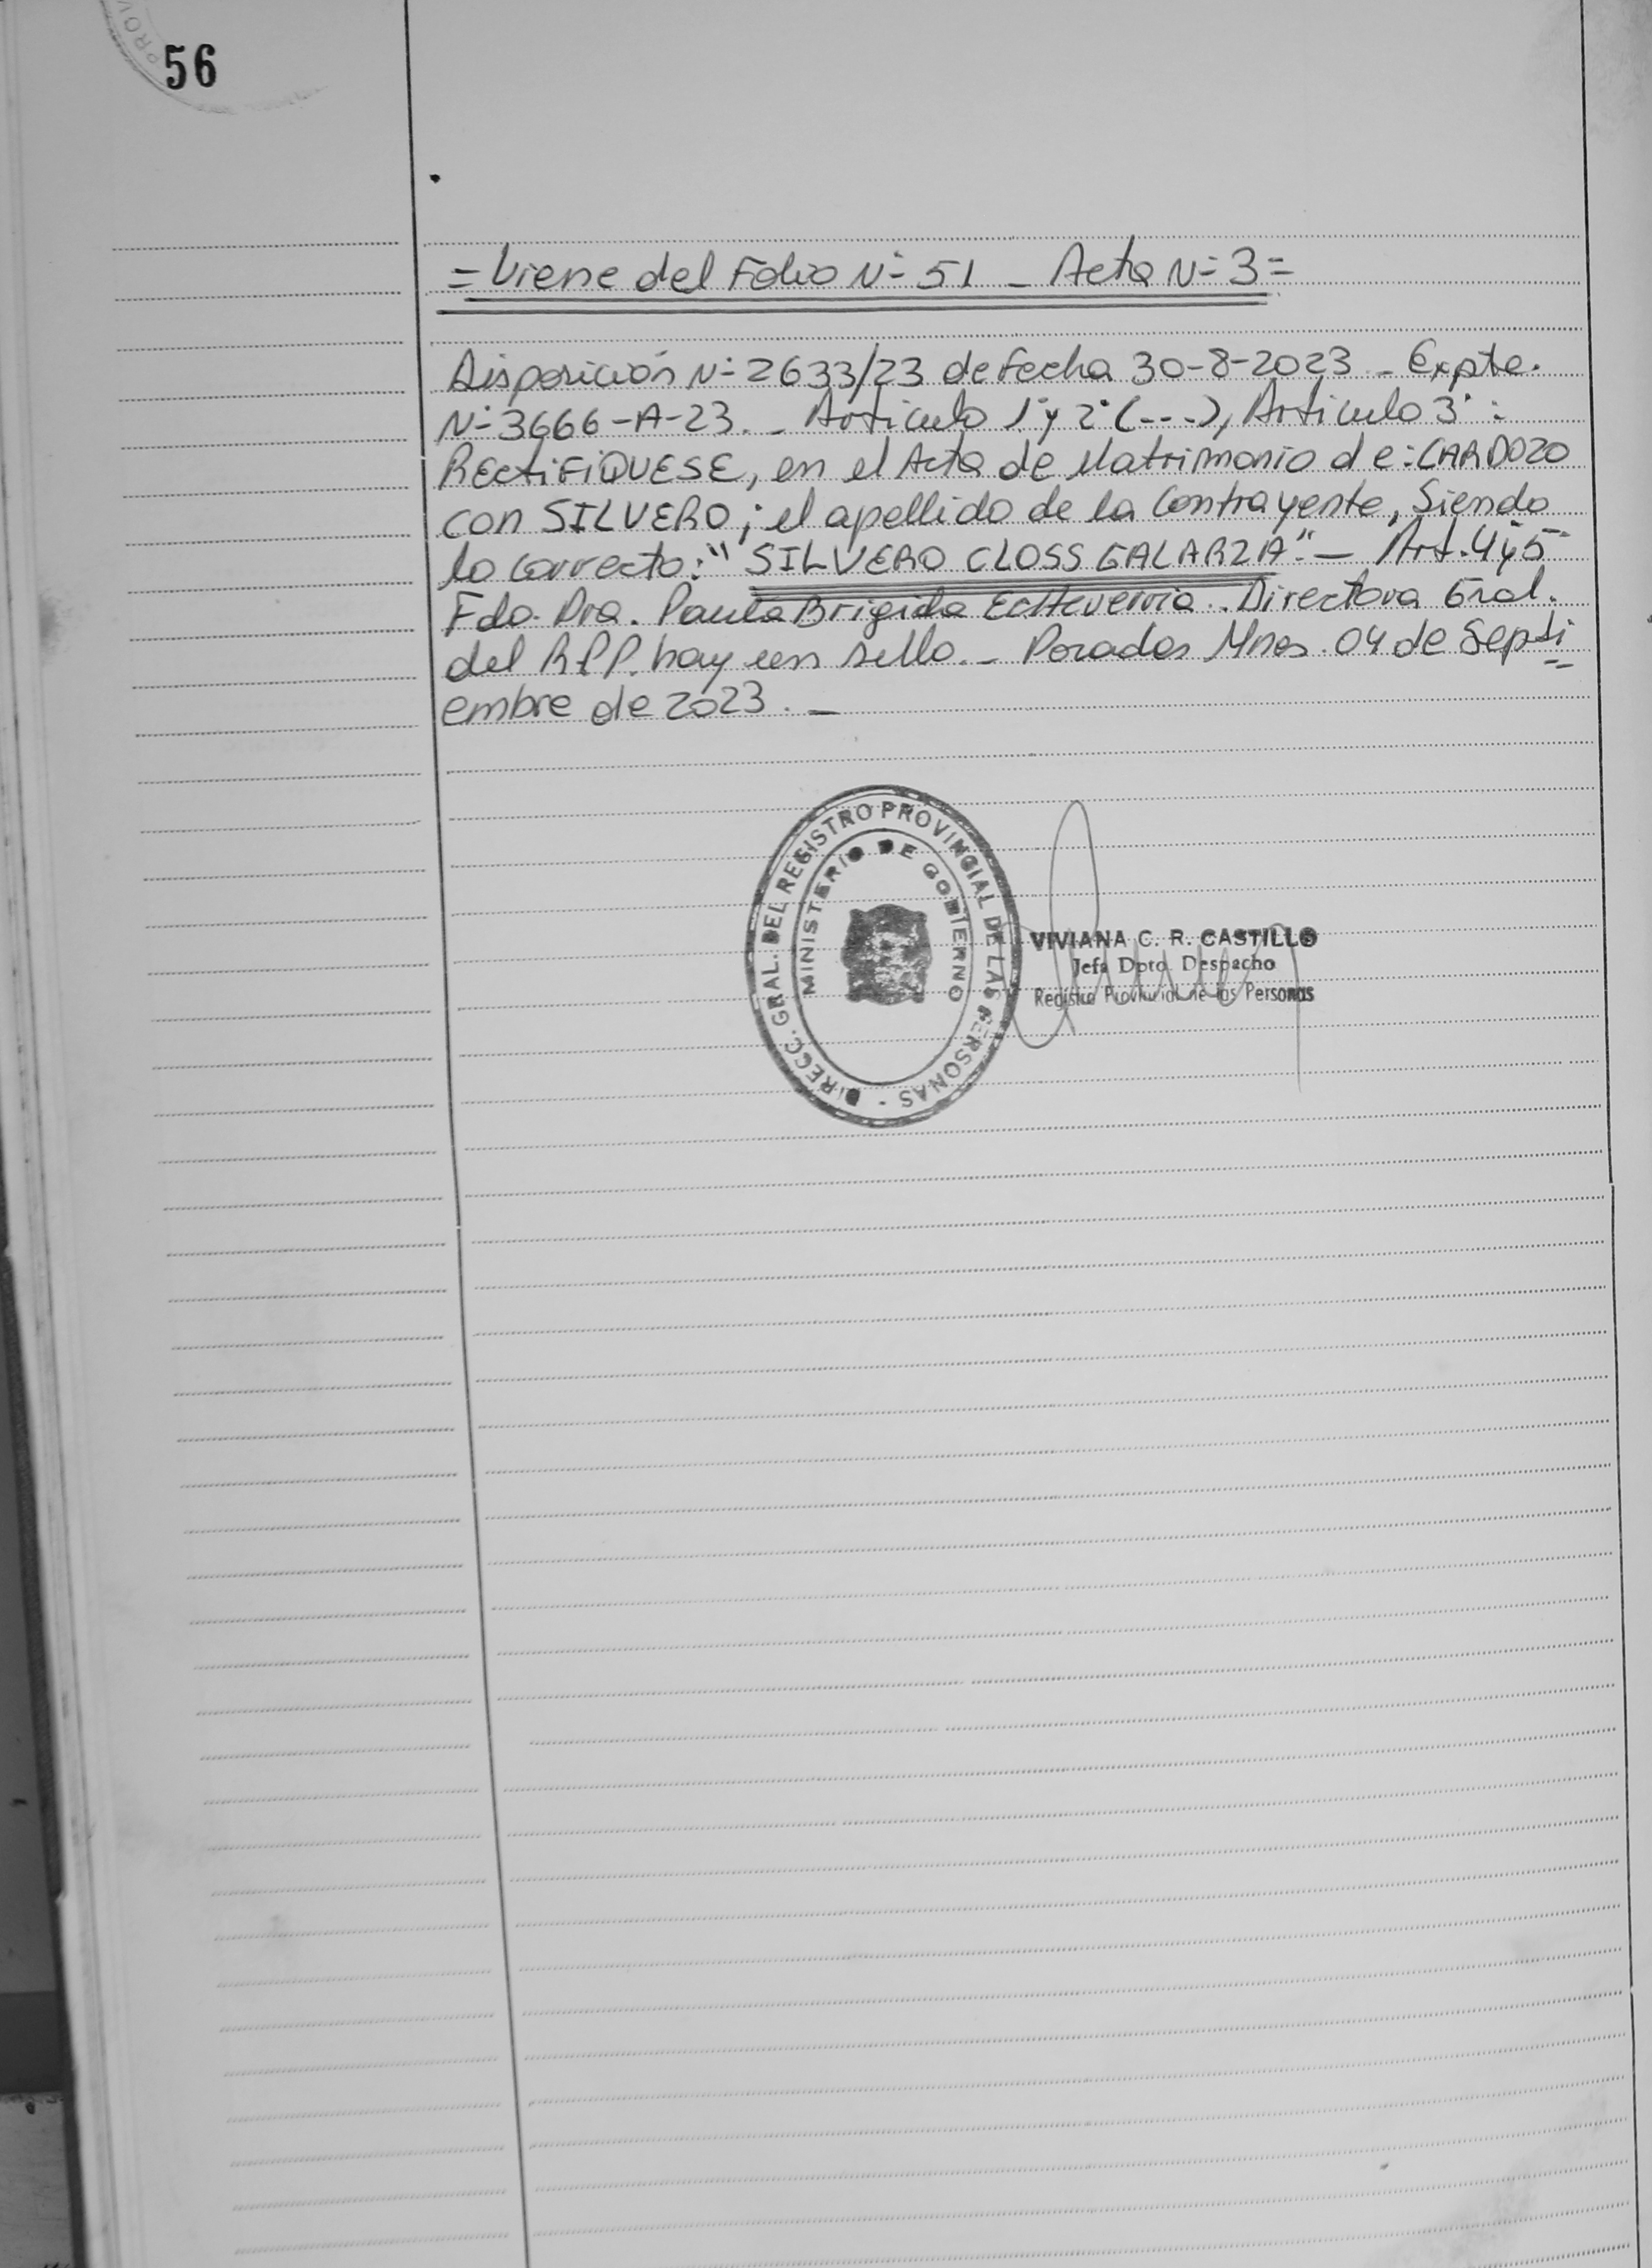 PROV
56
= Viene del Folio Nº 51 - Acta Nº 3 =
Disposición Nº 2633/23 de fecha 30-8-2023 - Expte.
Nº 3666-A-23. - Artículo 1º y 2º (---), Artículo 3º:
RECTIFIQUESE, en el Acta de Matrimonio de: CARDOZO
con SILVERO; el apellido de la Contrayente, Siendo
lo Correcto: "SILVERO CLOSS GALARZA". - Art. 4 y 5
Fdo. Dra. Paula Brigida Echeverria. Directora Gral.
del R.P.P. hay un sello. - Posadas Mnes. 04 de Septi
embre de 2023. -
DIRECC. GRAL. DEL REGISTRO PROVINCIAL DE LAS PERSONAS -
MINISTERIO DE GOBIERNO
VIVIANA C. R. CASTILLO
Jefa Dpto. Despacho
Registro Provincial de las Personas